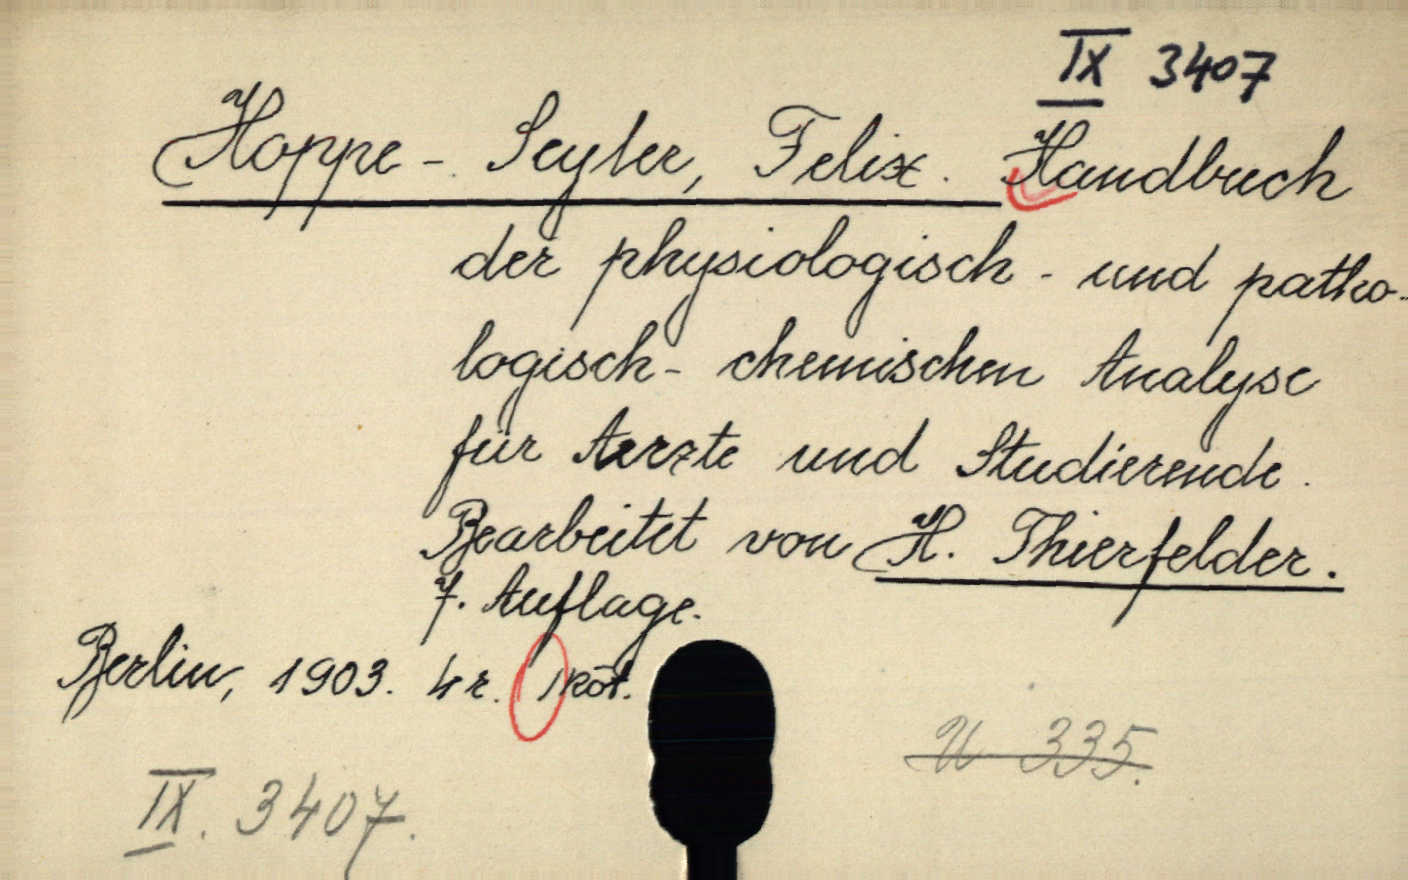 IX 3407
Hoppe-Seyler, Felix. Handbuch
der physiologisch- und patho-
logisch-chemischen Analyse
für Aerzte und Studierende.
Bearbeitet von H. Thierfelder.
7. Auflage.
Berlin, 1903. 4r. 1 köt.
U 335.
IX. 3407.